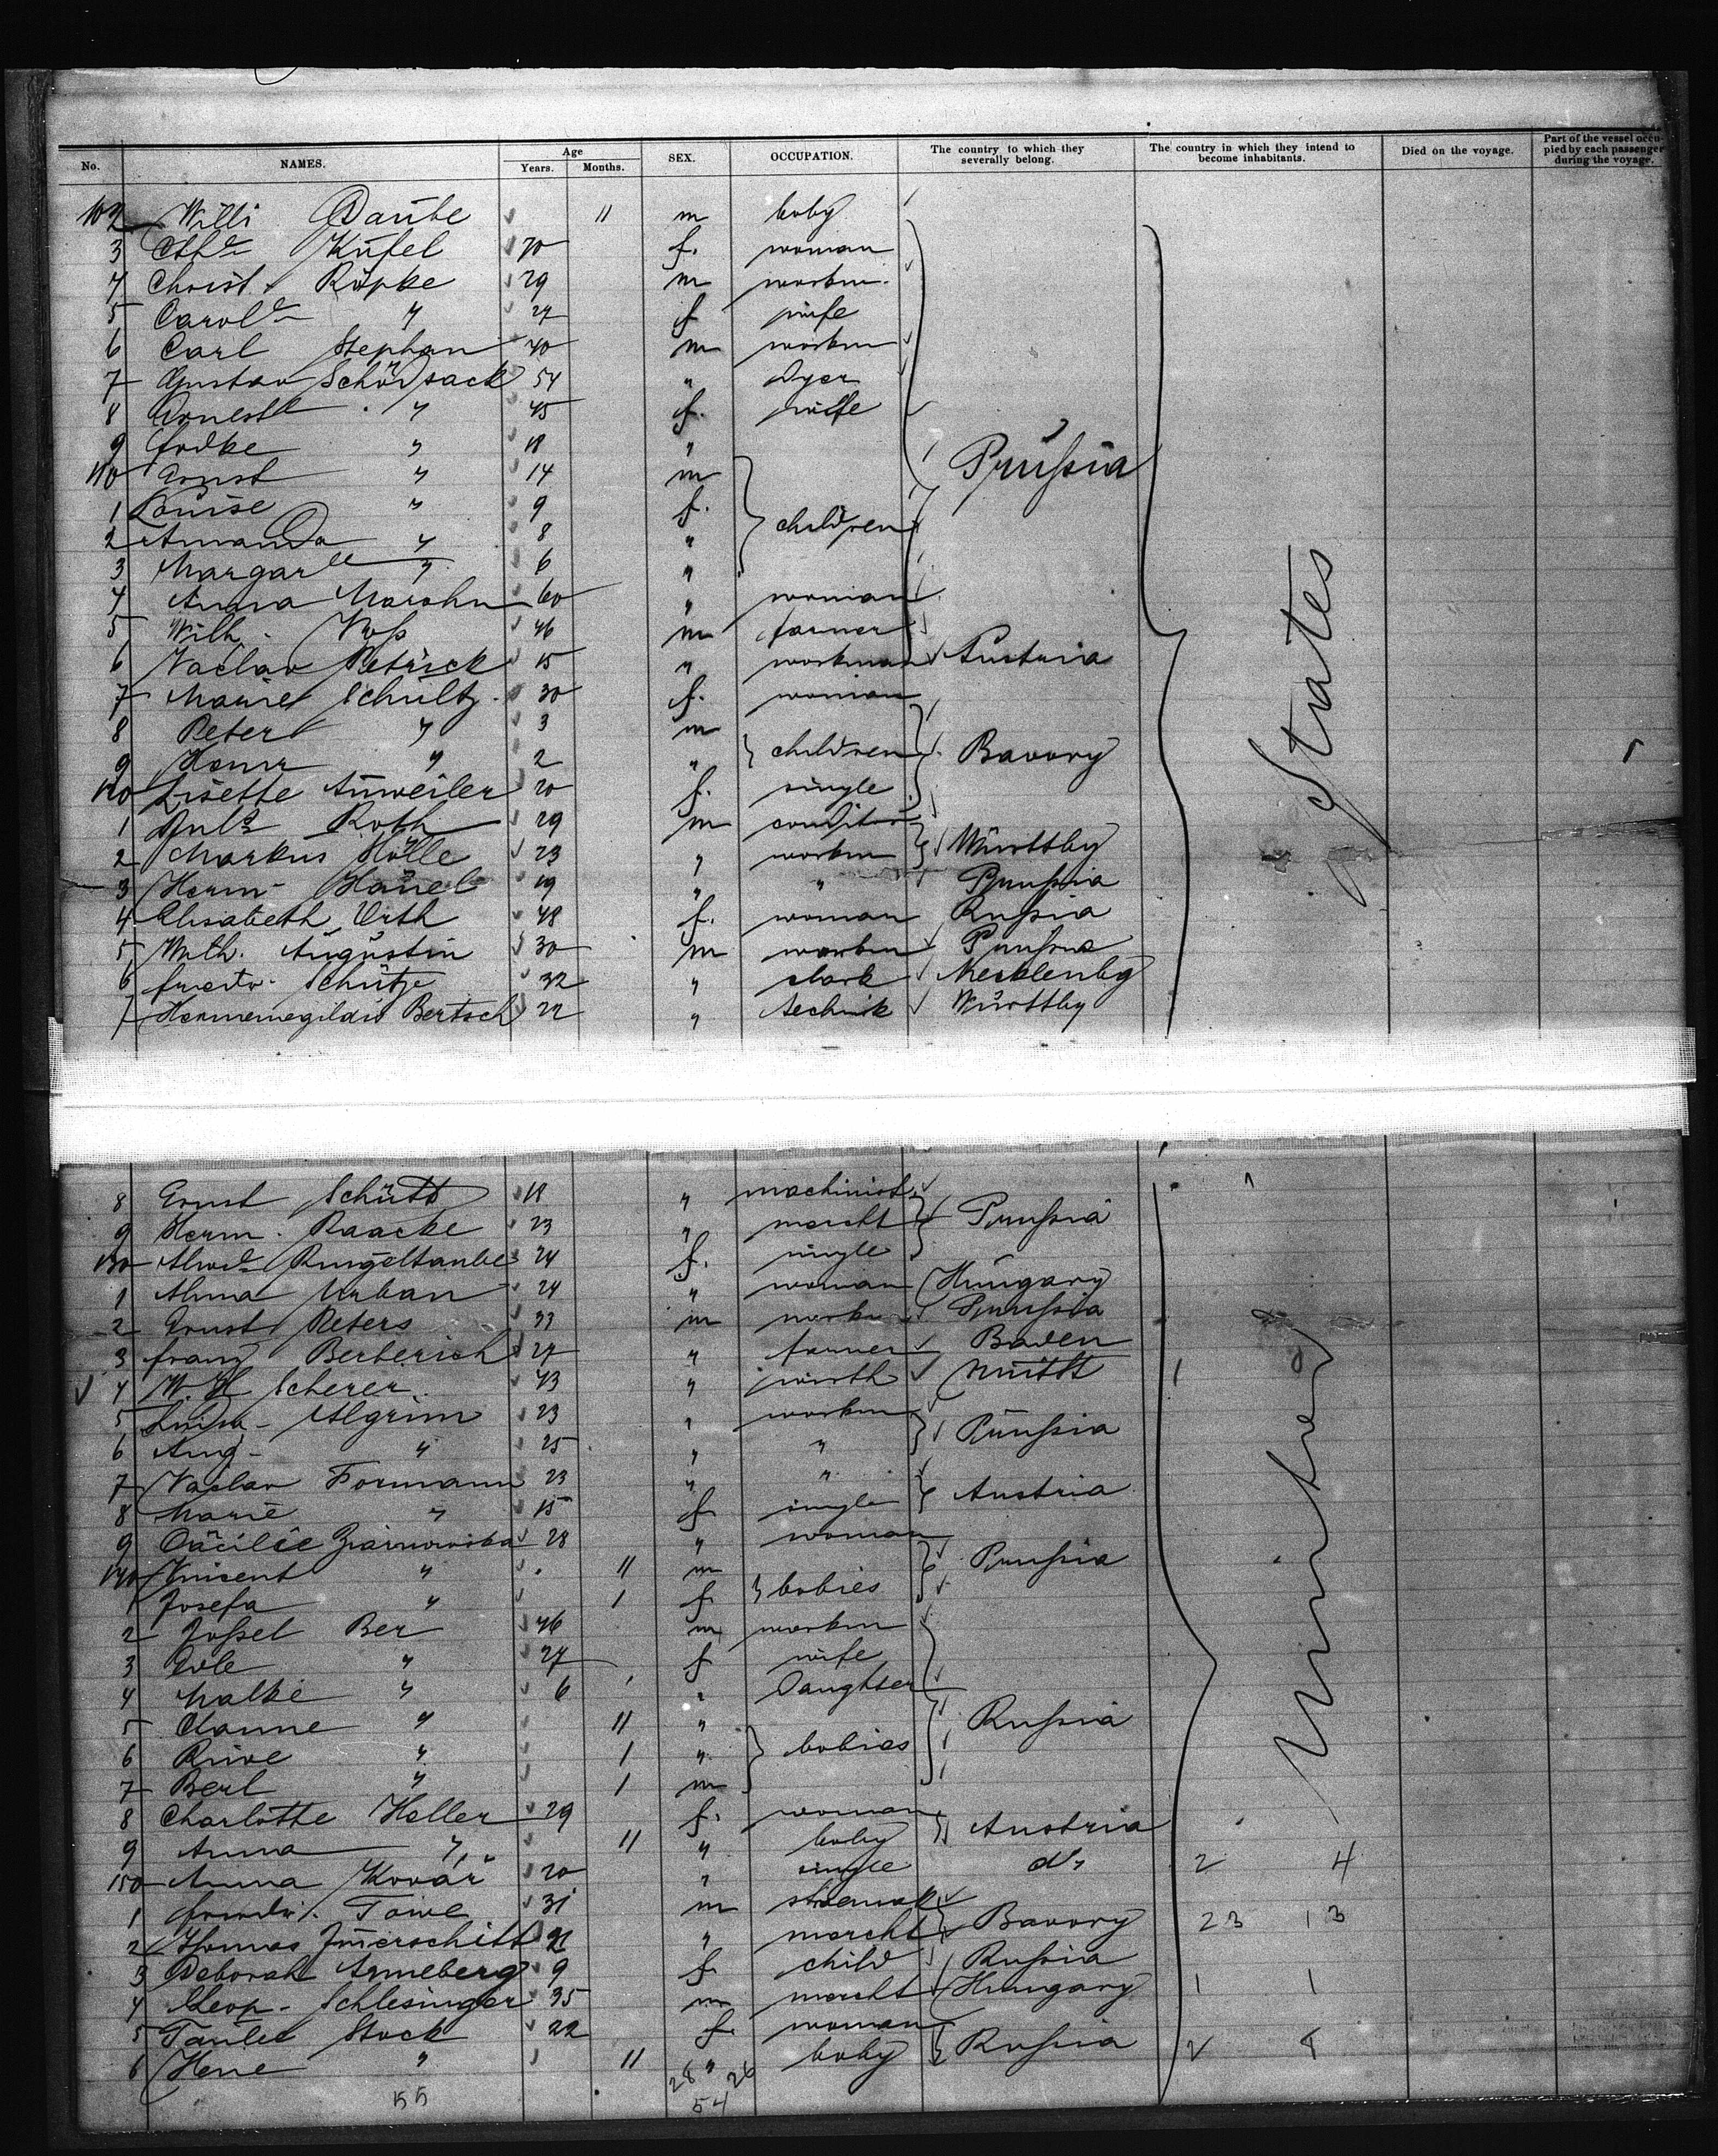 No. NAMES. Age Years. Months. SEX. OCCUPATION. The country to which they severally belong. The country in which they intend to become inhabitants. Died on the voyage. Part of the vessel occupied by each passenger during the voyage.
102 Willi Daube 11 m boby
3 Küfel 70 f. woman
4 Christ. Röpke 29 m workm.
5 Carole " 27 f wife
6 Carl Stephan 40 m workm
7 Gustav Schödsack 54 " Dyer
8 Ernestе " 45 f. wife
9 Fridke " 18 "
110 Ernst " 14 m Prussia
1 Louise " 9 f.
2 Amanda " 8 " children
3 Margar " 6 "
4 Anna Marohn 60 " woman
5 Wilh. Voss 46 m farmer
6 Vaclav Petrick 15 " workman Austria
7 Marie Schultz 30 f. woman
8 Peter " 3 m
9 Henr " 2 " children Bavory
120 Lisette Anweiler 20 f. single
1 Roth 29 m conditor
2 Markus Hölle 23 " workm Württbg
3 Herm. Hänel 19 " " Prussia
4 Elisabeth Orth 48 f. woman Russia
5 Wilh. Augustin 30 m workm Prussia
6 Friedr. Schütze 32 " clark Mecklenbg
7 Hermenegildis Bertsch 22 " technik Württbg
States
8 Ernst Schütt 18 " machinist
9 Herm. Raacke 23 " marcht Prussia
130 Ringeltaube 24 f. single
1 Alma Urban 24 " woman Hungary
2 Ernst Peters 33 m workm Prussia
3 Franz Berberich 27 " farmer Baden
4 W. H. Scherer 43 " wirth
5 Ahlgrim 23 " workm
6 Aug. " 25 " " Prussia
7 Vaclav Formann 23 " "
8 Marie " 15 f single Austria
9 Cäcilie 28 " woman
140 Vincent " 11 m Prussia
1 Josefa " 1 f. bobies
2 Jossel Ber 46 m workm
3 " 27 f wife
4 Malke " 6 " Daughter
5 Channe " 11 " Russia
6 Rive " 1 " bobies
7 Berl " 1 m
8 Charlotte Heller 29 f. woman
9 Anna " 11 " boby Austria
150 Anna Kovář 20 " single do 2 4
1 Friedr. 31 m shoemak
2 Thomas 21 " marcht Bavory 23 13
3 Deborah Anneberg 9 f child Russia
4 Leop. Schlesinger 35 m marcht Hungary 1 1
5 Taube Stock 22 f. woman
6 Hene " 11 " boby Russia 2 8
United
55 28 26
54